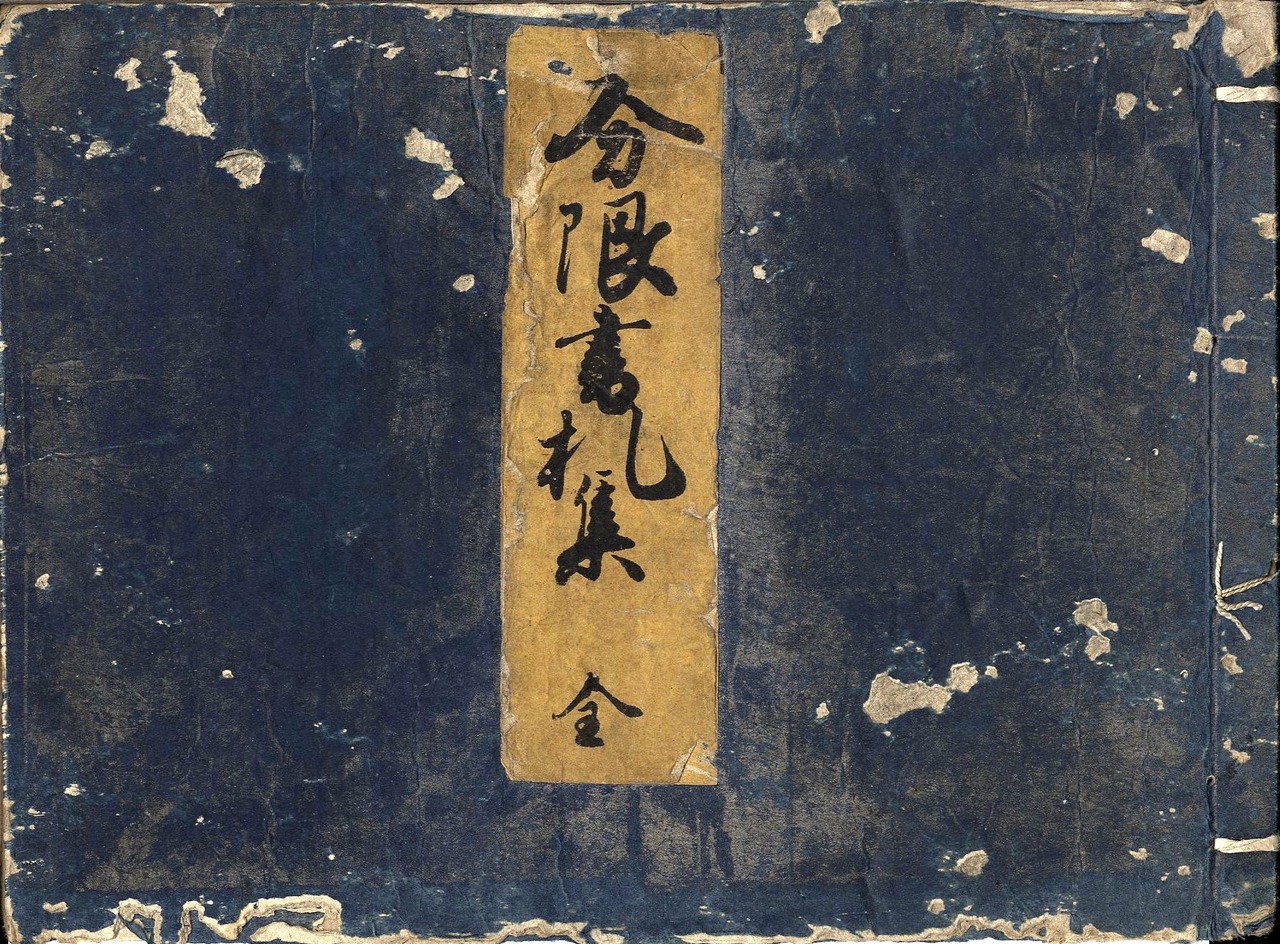 分限書札集 全